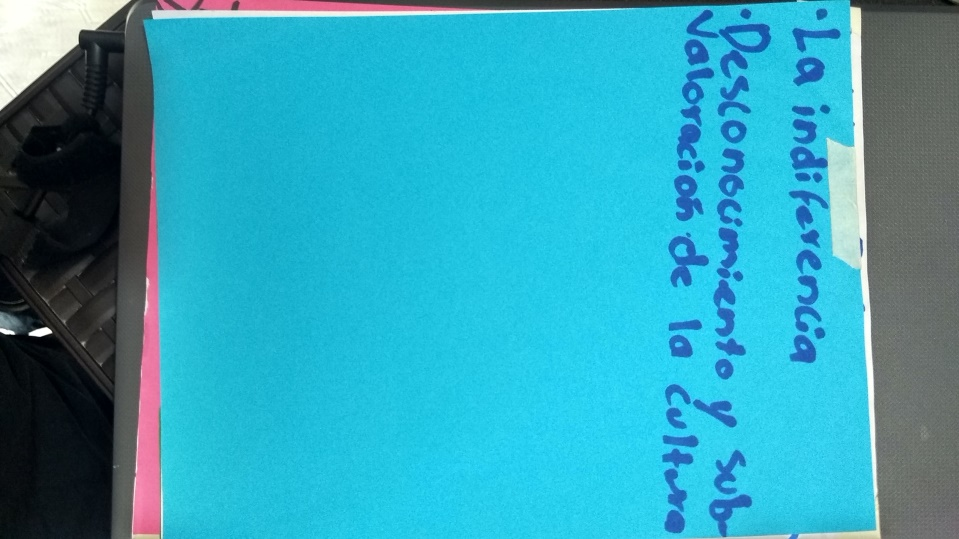 ·La indiferencia
·Desconocimiento y sub-
valoración de la cultura